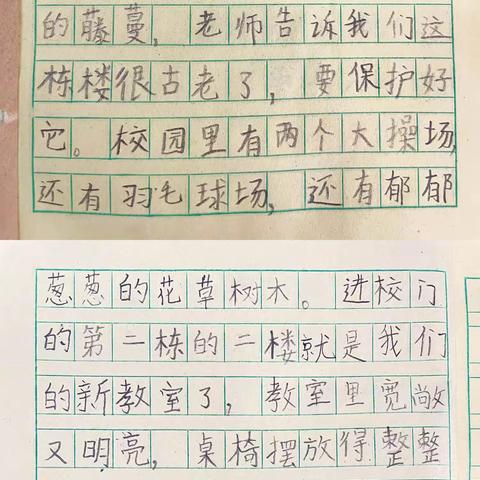 的藤蔓，老师告诉我们这
栋楼很古老了，要保护好
它。校园里有两个大操场，
还有羽毛球场，还有郁郁
葱葱的花草树木。进校门
的第二栋的二楼就是我们
的新教室了，教室里宽敞
又明亮，桌椅摆放得整整